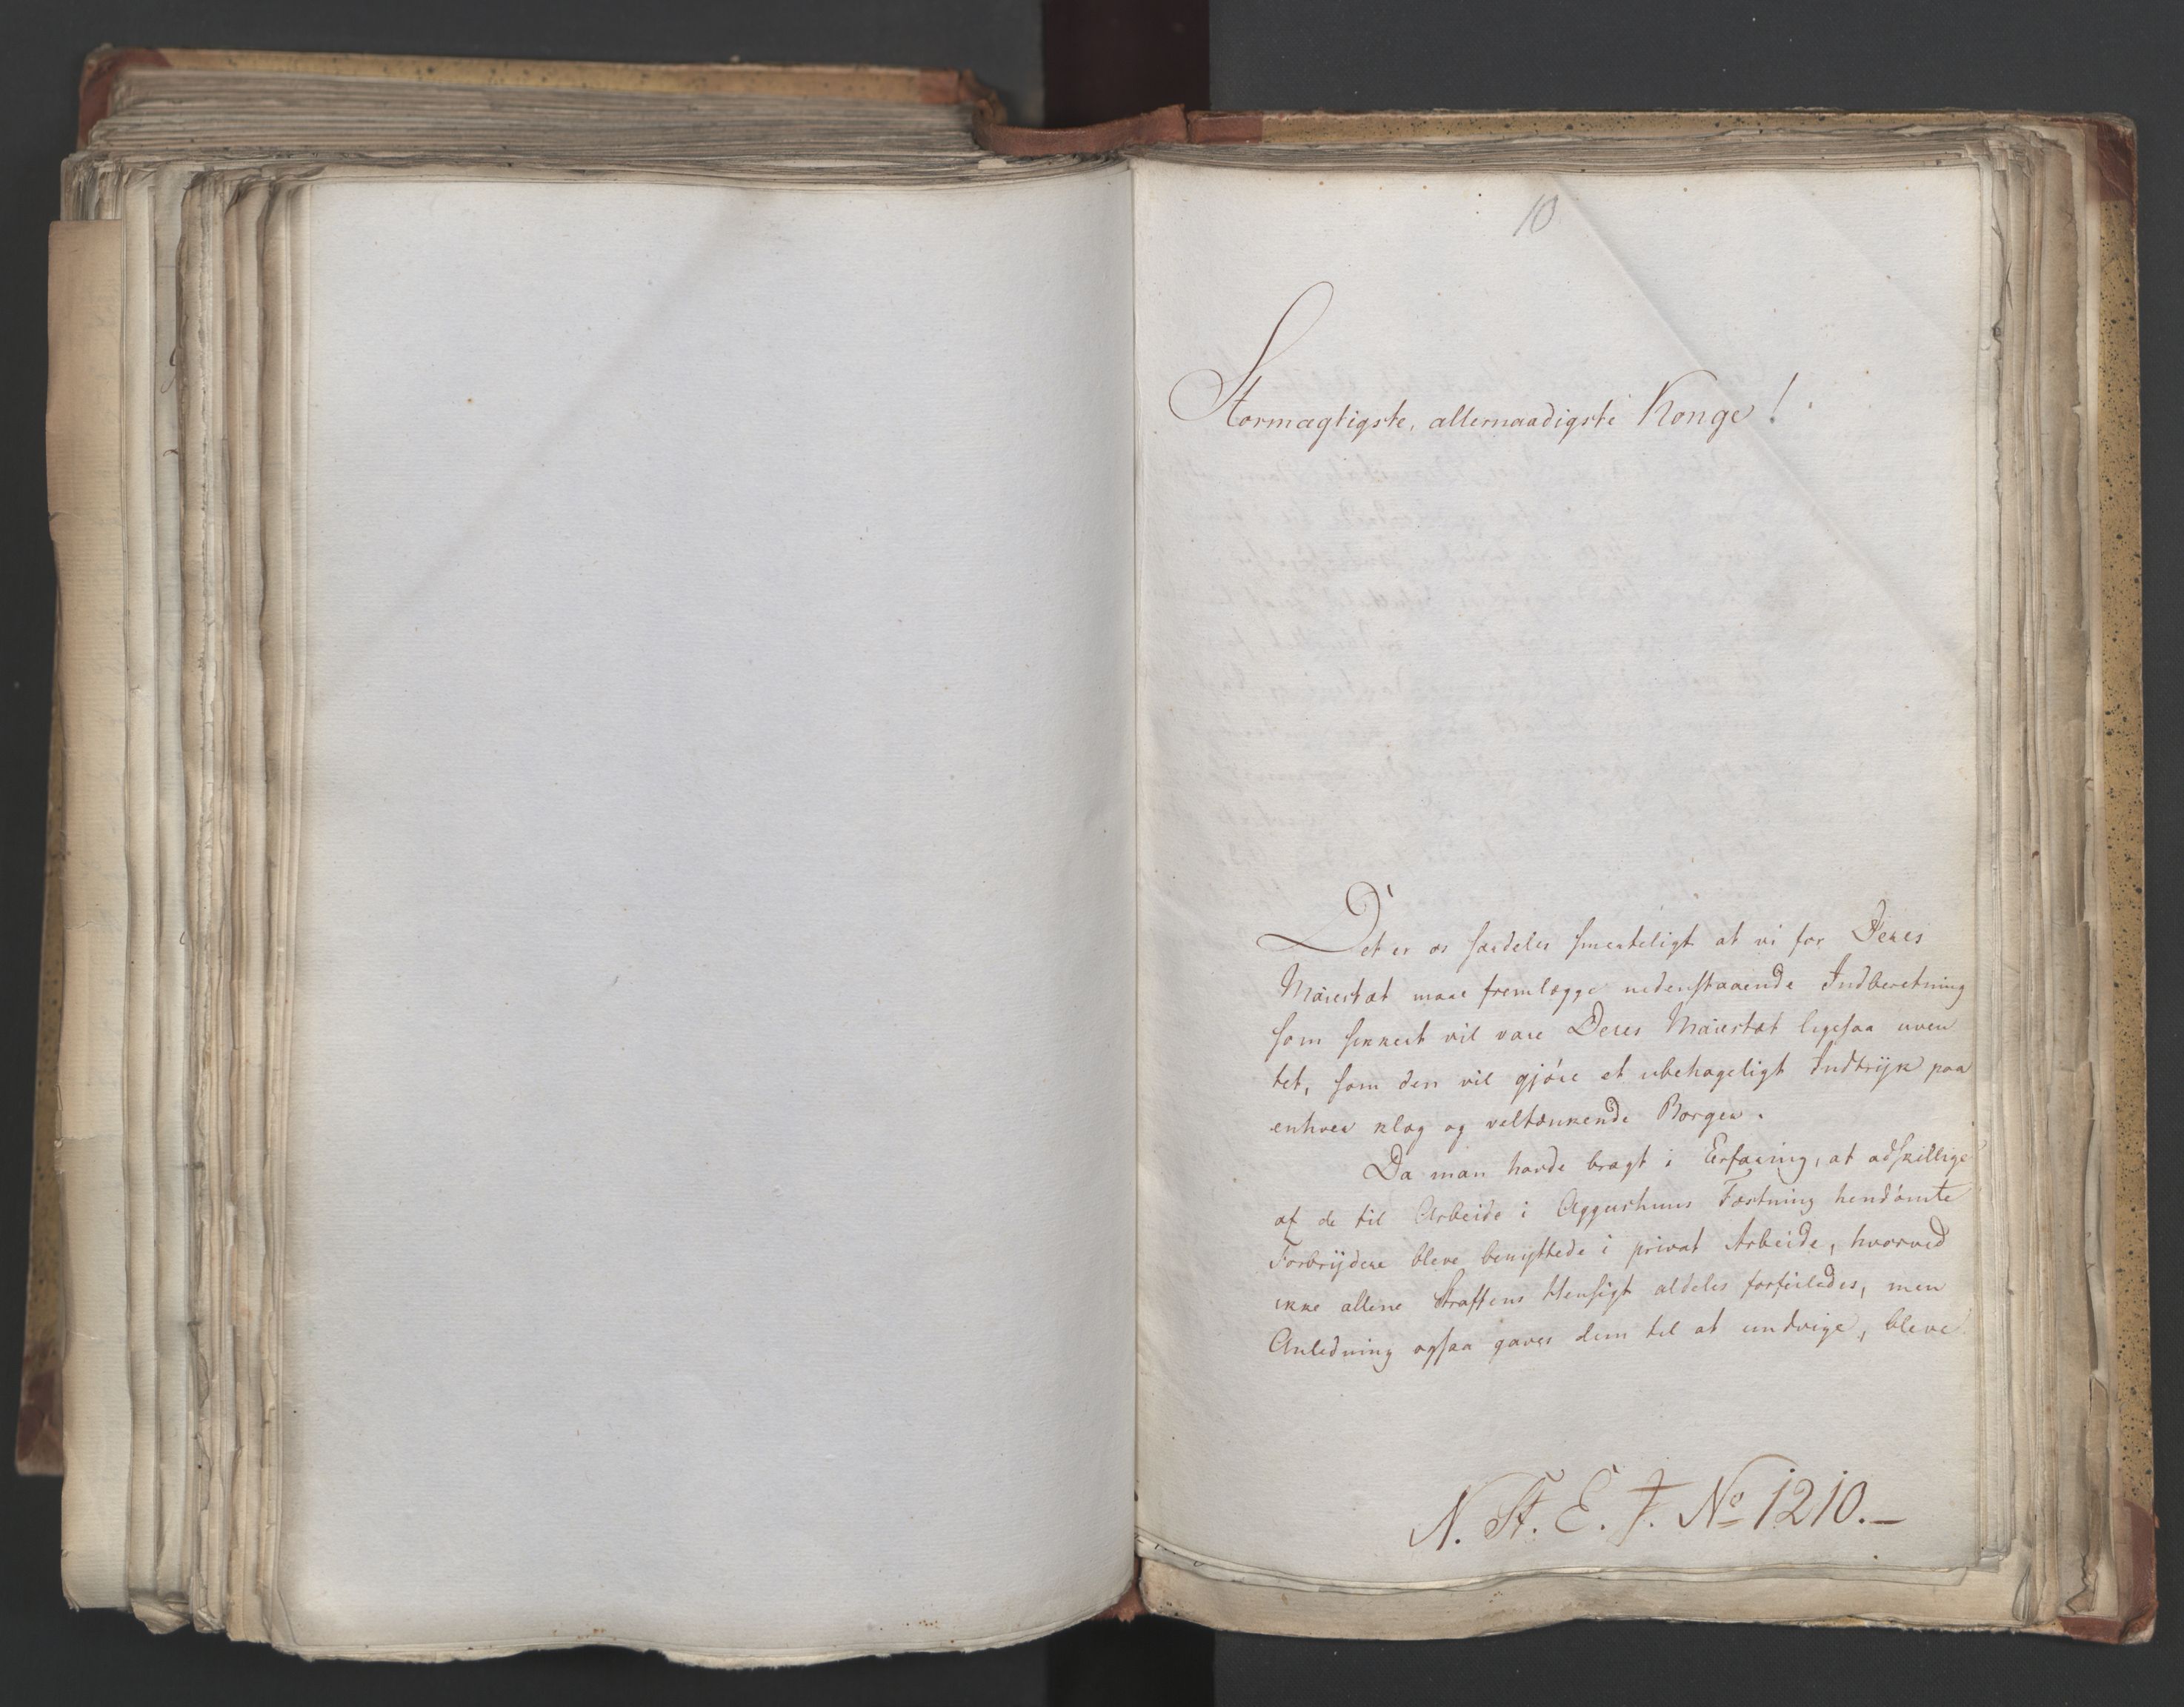 10
Stormægtigste, allernaadigste Konge!
Det er os særdeles smerteligt at vi for Deres
Majestæt maae fremlægge nedenstaaende Indberetning
som sikkert vil være Deres Majestæt ligesaa uven
tet, som den vil gjøre et ubehageligt Indtryk paa
enhver klog og veltænkende Borger.
Da man havde bragt i Erfaring, at adskillige
af de til Arbeide i Aggershuus Fæstning hendømte
Forbrydere bleve benyttede i privat Arbeide, hvorved
ikke allene Straffens Hensigt aldeles forfeiledes, men
Anledning ogsaa gaves dem til at undvige, bleve
N. St. E. J. No 1210.-